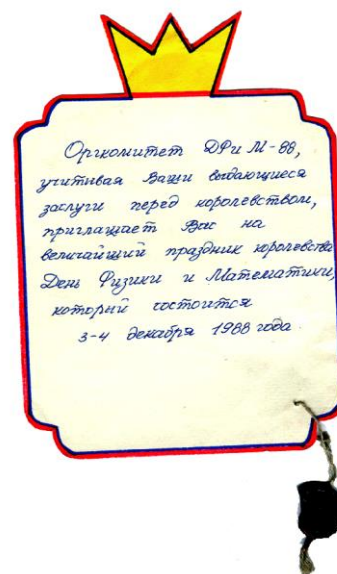 Оргкомитет ДФи М-88,
учитывая Ваши выдающиеся
заслуги перед королевством,
приглашает Вас на
величайший праздник королевства
День Физики и Математики,
который состоится
3-4 декабря 1988 года